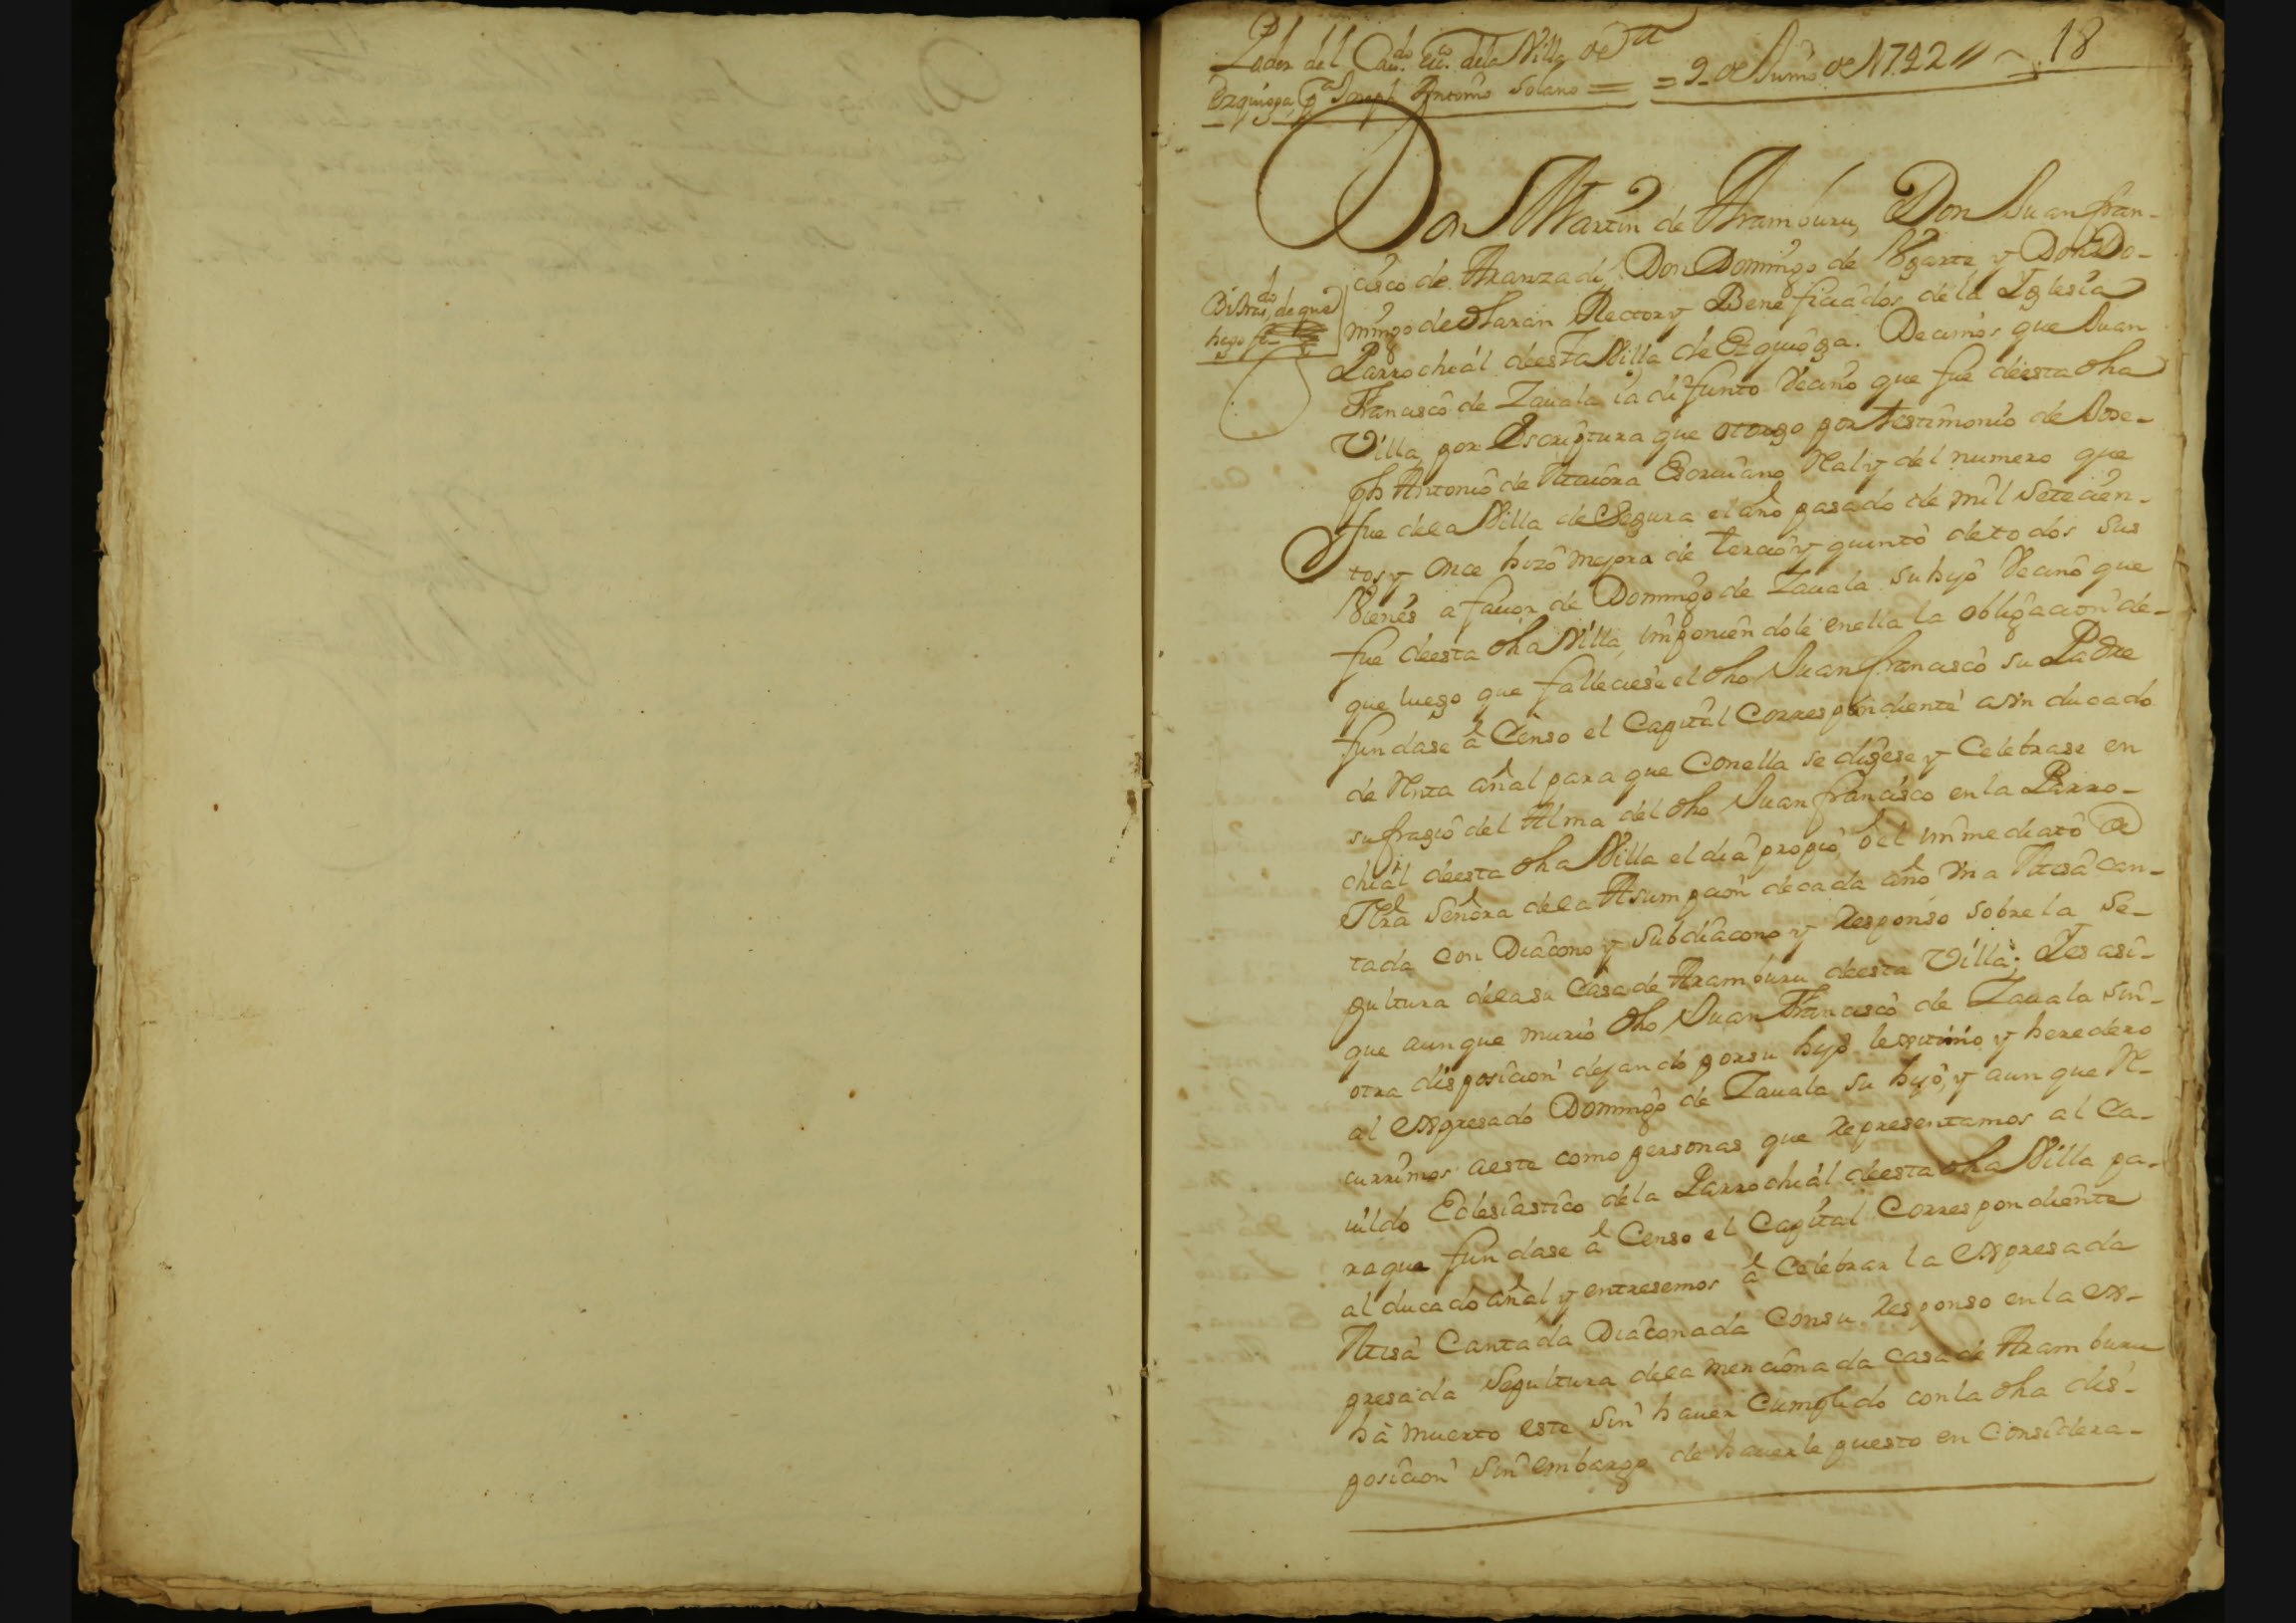 Poder del Cau.do ecc.o dela Villa de
Ezquioga, pa Joseph Antonio Solano = = 9 de Junio de 1742 //
18
Don Martin de Aramburu, Don Juan fran-
cisco de Aranzadi, Don Domingo de Vgarte y Don Do-
mingo de Olaran Rector y Beneficiados dela Yglesia
Parrochial deesta Villa de Ezquioga. Decimos que Juan
Francisco de Zauala ia difunto Vecino que fue deesta dha
Villa, por Escriptura que otorgo por testimonio de Jose-
ph Antonio de Escriuano Real y del numero que
fue dela Villa de Segura el año pasado de mil Setecien-
tos y Once hizo mejora de tercio y quinto detodos sus
Vienes a fauor de Domingo de Zauala su hijo Vecino que
fue deesta dha Villa, imponiendole enella la obligacion de-
que luego que falleciese el dho Juan francisco su Padre
fundase à Censo el Capital Correspondiente aVn ducado
de Renta añal para que Conella se digese y Celebrase en
sufragio del Alma del dho Juan francisco en la Parro-
chial deesta dha Villa el dia propio, ò el immediato de
Nra Señora dela Asumpcion decada año Vna Missa Can-
tada con Diacono y Subdiacono y Responso sobre la Se-
pultura dela su Casa de Aramburu deesta Villa; Yes asi-
que aunque murio dho Juan Francisco de Zauala sin-
otra disposicion dejando por su hijo lexitimo y heredero
al expresado Domingo de Zauala su hijo, y aunque Re-
currimos aeste como personas que Representamos al Ca-
uildo Eclesiastico dela Parrochial deesta dha Villa pa-
raque fundase à Censo el Capital Correspondiente
al ducado añal y entrasemos à Celebrar la expresada
Missa Cantada Diaconada Consu Responso en la ex-
presada Sepultura dela mencionada casa de Aramburu
hà muerto este sin hauer Cumplido con la dha dis-
posicion sin embargo de hauerle puesto en Considera-